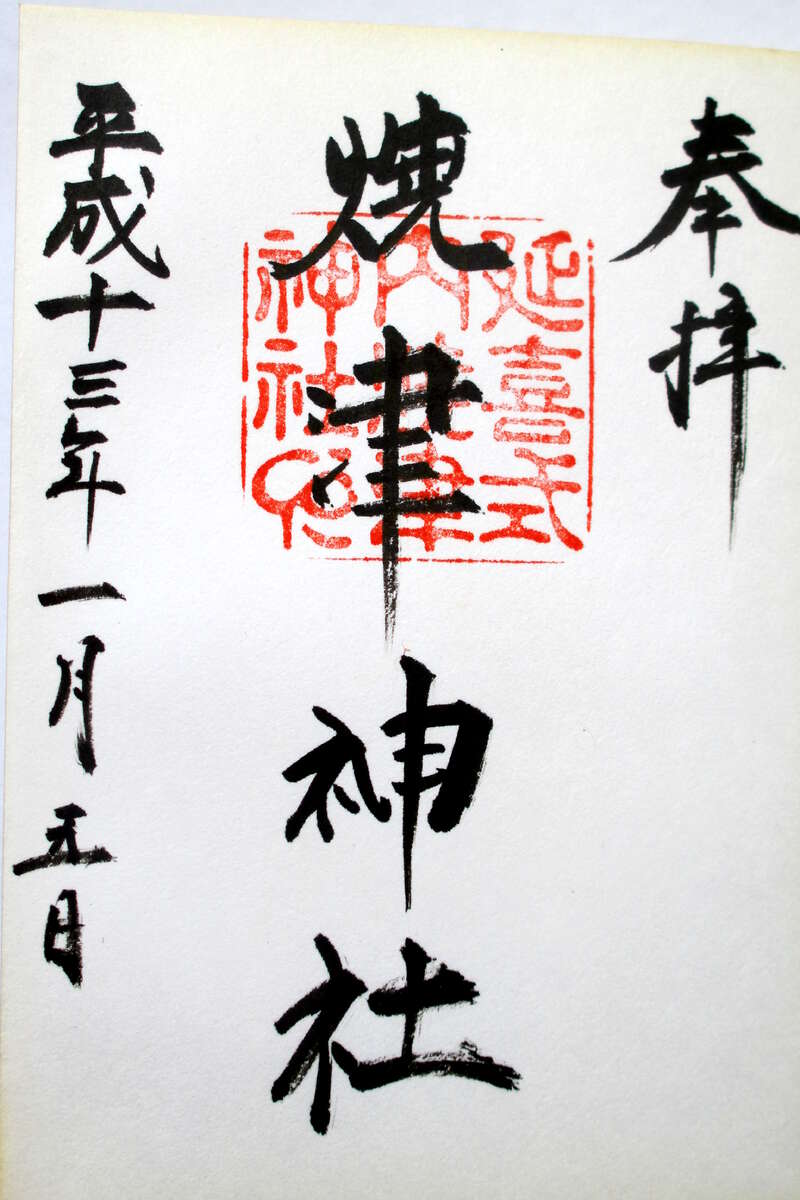 奉拝
焼津神社
延喜式
内焼津
神社印
平成十三年一月五日